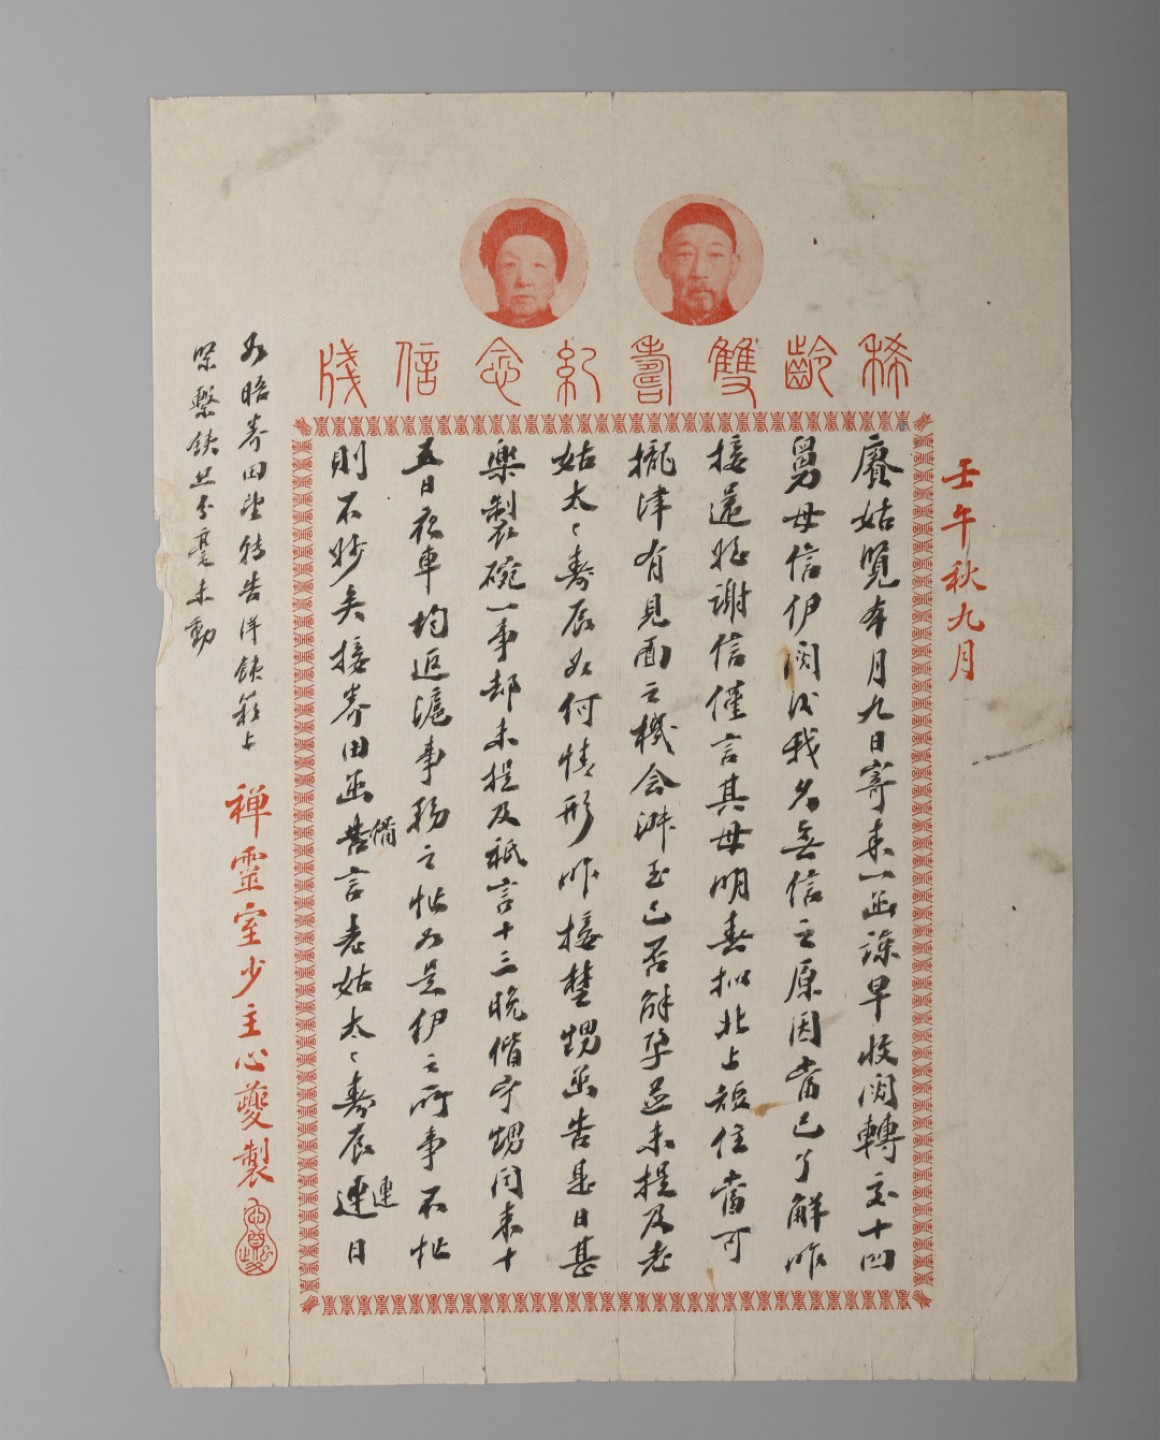 稀齡雙壽紀念信牋
壬午秋九月
賡姑覽本月九日寄來一函諒早收閱轉交十四
舅母信伊閱後我久無信之原因當已了解昨
接還婭謝信僅言其母明春擬北上短住當可
攏津有見面之機會淋玉已否解孕並未提及老
姑太々壽辰如何情形昨接楚甥函告是日甚
樂製碗一事却未提及祇言十三晚偕宁甥同來十
五日夜車均返滬事務之忙如是伊之所事不忙
則不妙矣接券田函備言老姑太々壽辰連日
如晤券田望轉告洋鐵箱上
緊繫鐵絲分毫未動
禪靈室少主心夔製